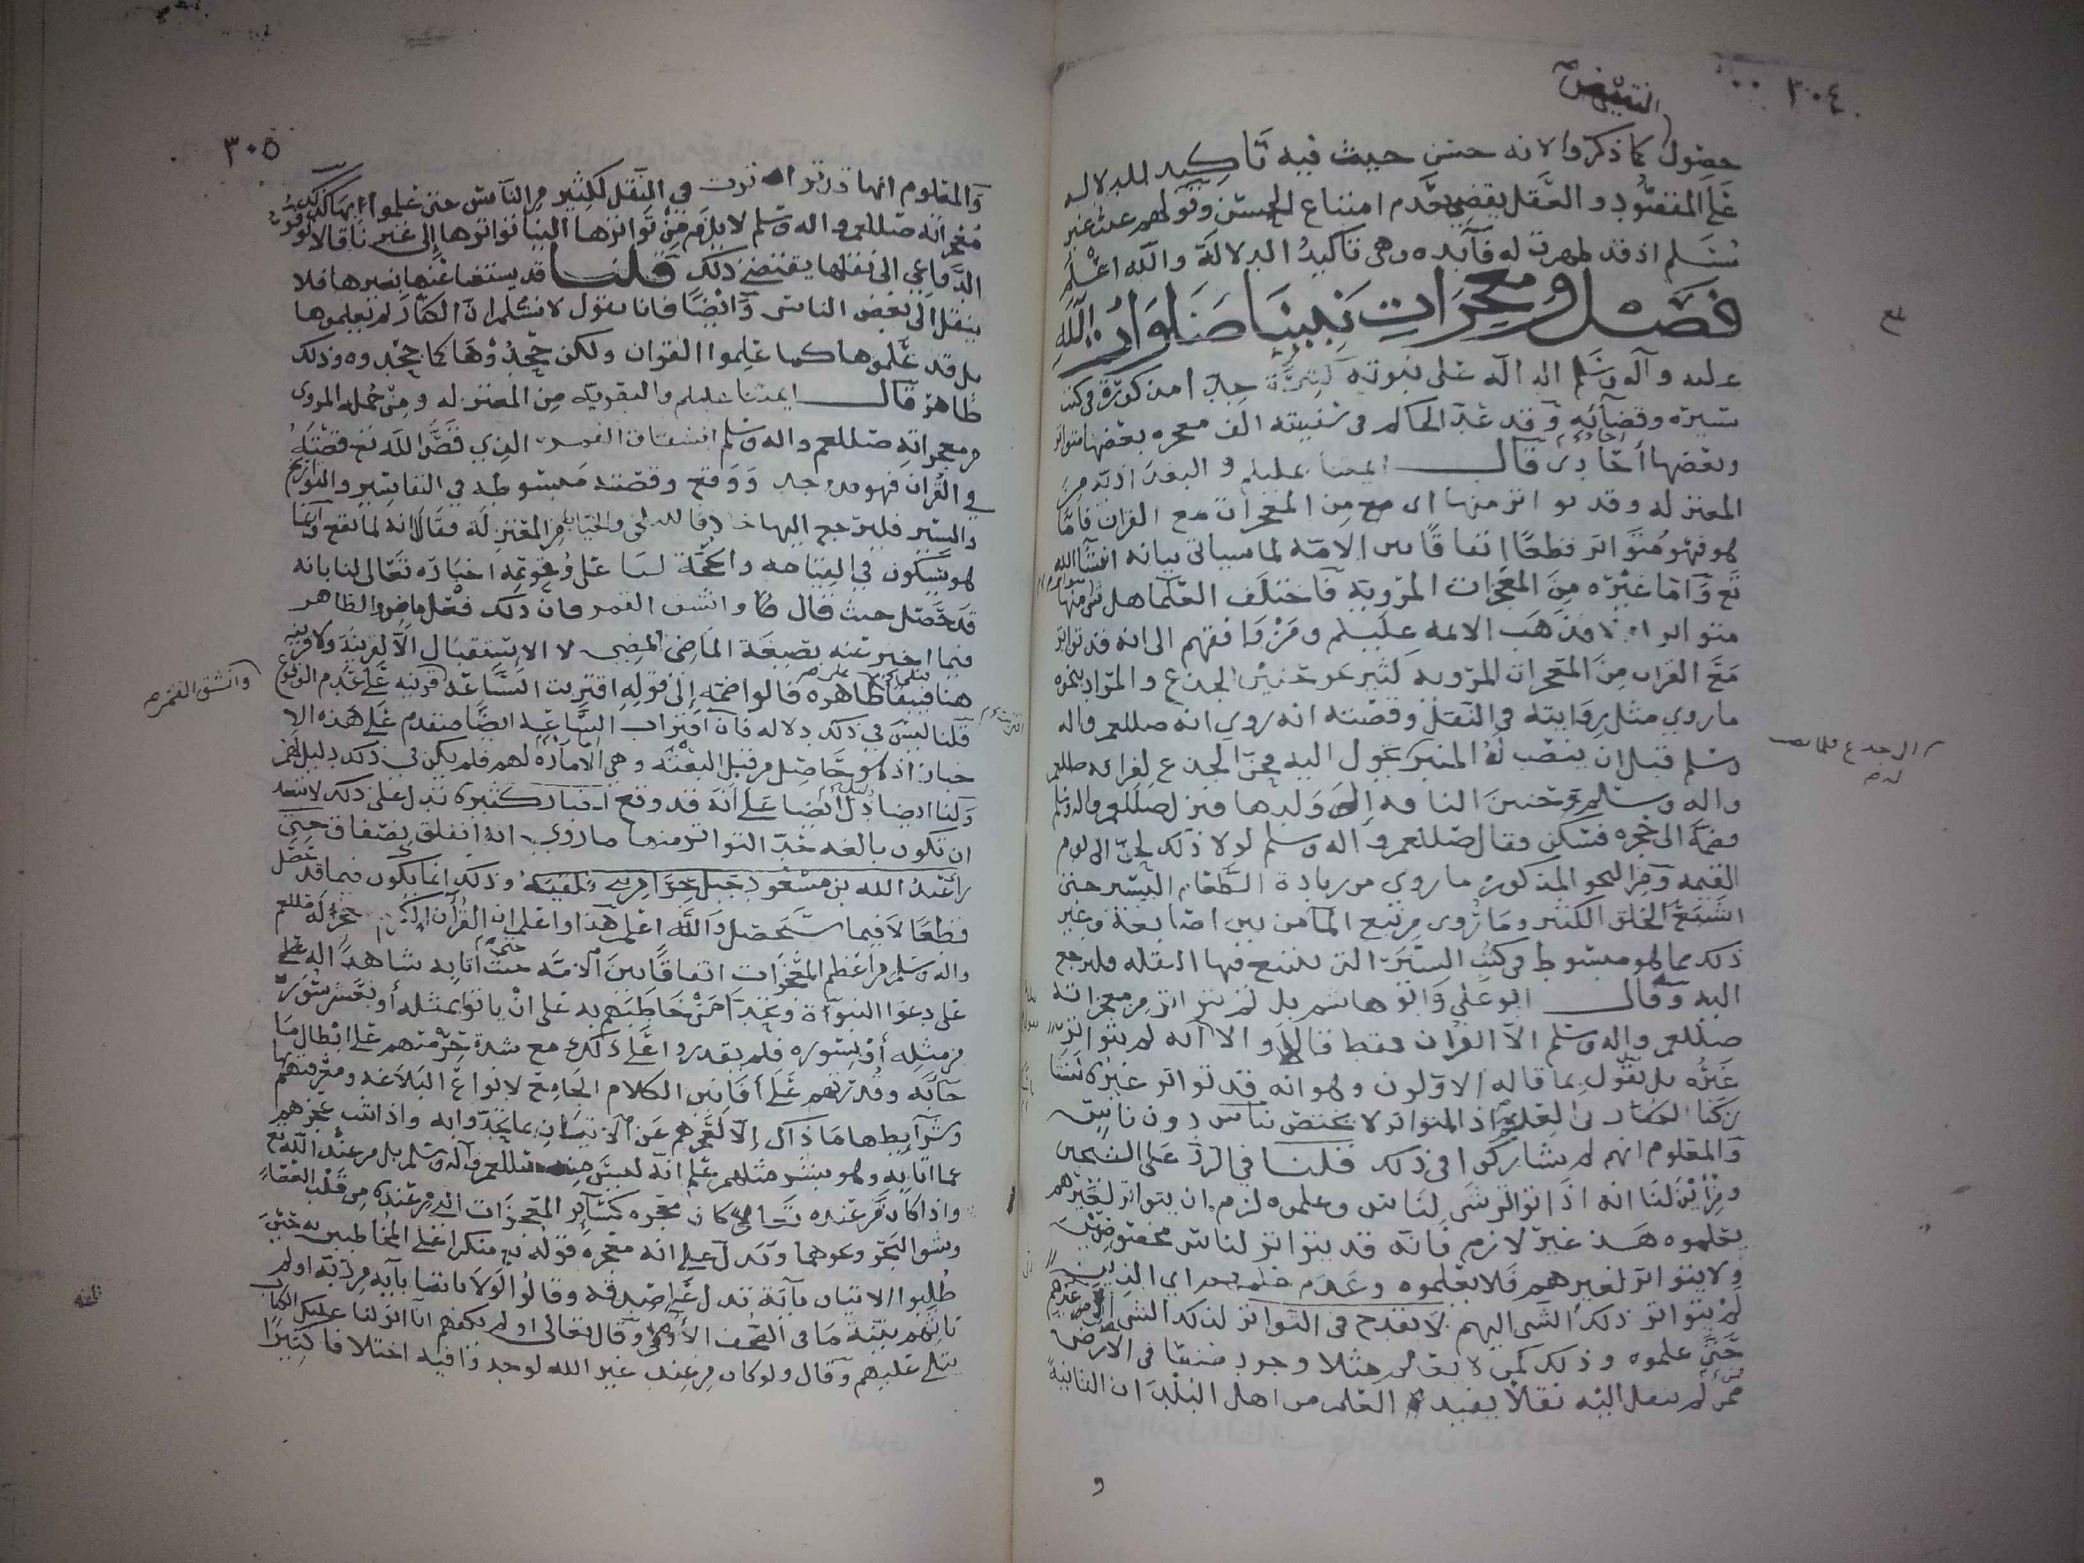 ٣٠٤
النقيض
حصول ما ذكروا لانه حسن حيث فيه تأكيد للدلاله
على المقصود والعقل يقضي بعدم امتناع الحسن وقولهم عبث غير
مسلم اذ قد ظهرت له فآيده وهي تأكيد الدلالة والله اعلم
فصل ومعجزات نبينا صلوات الله
عليه وآله وسلم الداله على نبوته كثيرة جدا مذكورة في كتب
سيره وقصآئه وقد عد الحاكم في سفينته الف معجزه بعضها متواتر
وبعضها أحادي قال ايمتنا عليلم و البغداديه من
المعتزله وقد تواتر منها اي من المعجزات مع القرآن فامّا
هو فهو متواتر قطعًا اتفاقًا بين الامة لما سياتي بيانه انشآ الله
تع وآما غيره من المعجزات المروية فآختلف العلما هل شي منها
متواتر ام لا فذهب الايمه عليلم ومن وافقهم الى انه قد تواتر
مع القرآن من المعجزات المرويه كثير نحو حنين الجذع والمراد بنحوه
ما روي مثل روايته في النقل وقصته انه روي انه صللعم وآله
وسلم قبل ان ينصب له المنبر تحول اليه فحن الجذع لفراقه صللعم
واله وسلم حنين الناقه إلى ولدها فنزل صللعم واله وسلم
وضمه الى حجره فسكن فقال صللعم واله وسلم لولا ذلك لحن الى يوم
القيمه ومن النحو المذكور ما روي من زيادة الطعام اليسير حتى
اشبع الخلق الكثير وما روي من نبع المآ من بين اصابعه وغير
ذلك مما هو مبسوط في كتب السير التي يتتبع فيها النقله فليرجع
اليه وقال ابو علي وابو هاشم بل لم يتواتر من معجزاته
صللعم واله وسلم الا القرآن فقط قالا والا انه لم يتواتر
غيره بل نقول بما قاله الاولون وهو انه قد تواتر غيره
الكفار في العلم اذ المتواتر لا يختص بناس دون ناس
والمعلوم انهم لم يشاركوا في ذلك قلنا في الرد على الشيخين
ومن أين لنا انه اذا تواتر شي لناس وعلموه لزم ان يتواتر لغيرهم
يعلموه هذا غير لازم فانه قد يتواتر لناس مخصوصين
ولا يتواتر لغيرهم فلا يعلموه وعدم علم اي الذين
لم يتواتر ذلك الشي اليهم لا يقدح في التواتر لذلك الشي
حتى علموه وذلك كمن لا يعلم مثلا وجود صنعا في الارض
ممن لم ينقل اليه نقلًا يفيد العلم من اهل البلدان النائية
و
الجذع فلما نصب له
٣٠٥
والمعلوم انها قد تواترت في النقل لكثير من الناس حتى علموا
معجزاته صللعم واله وسلم لا يلزم من تواترها الينا تواترها إلى غيرنا قالا
الدواعي الى نقلها يقتضي ذلك قلنا قد يستغنا عنها بغيرها فلا
ينقل الى بعض الناس وآيضًا فانا نقول لا نسلم ان الكفار لم يعلموها
بل قد علموها كما علموا القرآن ولكن جحدوها كما جحدوه وذلك
ظاهر قال ايمتنا عليلم والبغدويه من المعتزله ومن جمله المروي
من معجزاته صللعم واله وسلم انشقاق القمر الذي قص الله تع قصته
في القرآن فهو قد وجد ووقع وقصته مبسوطه في التفاسير والتواريخ
والسير فليرجع اليها خلافا للبلخي والخياط من المعتزله فقالا انه لما يقع وانما
هو سيكون في القيامه والحجة لنا على وقوعه اخباره تعالى لنا بانه
قد حصل حيث قال تعا وانشق القمر فان ذلك فعل ماض والظاهر
فيما اخبر عنه بصيغة الماضي المضي لا الاستقبال الا لقرينة ولا قرينه
هنا فيبقا على ظاهره قالوا ضمه إلى قوله اقتربت الساعة قرينه على عدم الوقوع
قلنا ليس في ذلك دلاله فان اقتراب الساعه ايضًا متقدم على هذه الا
خبار اذ هو حاصل من قبل البعثه وهي الامارة لهم فلم يكن في ذلك دليل لهم
ولنا ايضا دليل ايضا على أنه قد وقع اخبار كثيره تدل على ذلك لا تبعد
ان تكون بالغه حد التواتر منها ما روي انه انفلق نصفان حتى
رأى عبد الله بن مسعود جبل حرا من بين فلقتيه وذلك انما يكون فيما قد حصل
قطعًا لا فيما سيحصل والله اعلم هذا واعلم ان القرآن الكريم معجزة له صللعم
واله وسلم من اعظم المعجزات اتفاقًا بين الامه حيث أتا به شاهدًا له على
على دعوا النبوآة وتحدا من خاطبهم به على ان ياتوا بمثله أو بعشر سور
من مثله أو بسوره فلم يقدروا على ذلك مع شدة حرصهم على ابطال ما
جآ به وقدرتهم على أفانين الكلام الجامع لانواع البلاغه ومعرفتهم بها
وشرآيطها ما ذاك إلا لعجزهم عن الاتيان بما تحدوا به واذا ثبت عجزهم
عما اتا به وهو بشر مثلهم علم انه ليس منه صللعم وآله وسلم بل من عند الله تع
واذا كان من عنده تعالى كان معجزه كسآير المعجزات التي من عنده من قلب العصا
وشق البحر ونحوهما ويدل على انه معجزه قوله تع منكرا على المخاطبين به حين
طلبوا الاتيان بآية تدل على صدقه وقالوا لولا ياتينا بآيه من ربه اولم
تاتهم بينة ما في الصحف الأولى وقال تعالى اولم يكفهم انا انزلنا عليك الكتاب
يتلى عليهم وقال ولو كان من عند غير الله لوجدوا فيه اختلافا كثيرًا
وانشق القمر